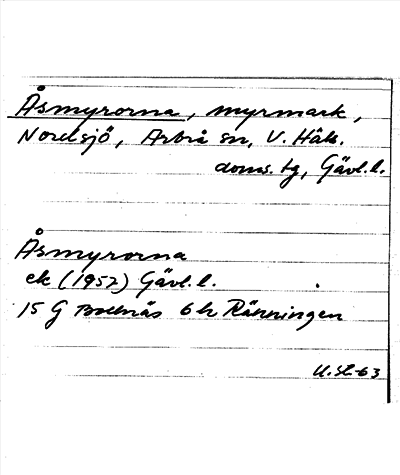 Åsmyrorna, myrmark,
Nordsjö, Arbrå sn, V. Häls.
doms. tg, Gävl. l.
Åsmyrorna
ek (1957) Gävl. l.
15 G Bollnäs 6 h Ränningen
U.SL-63